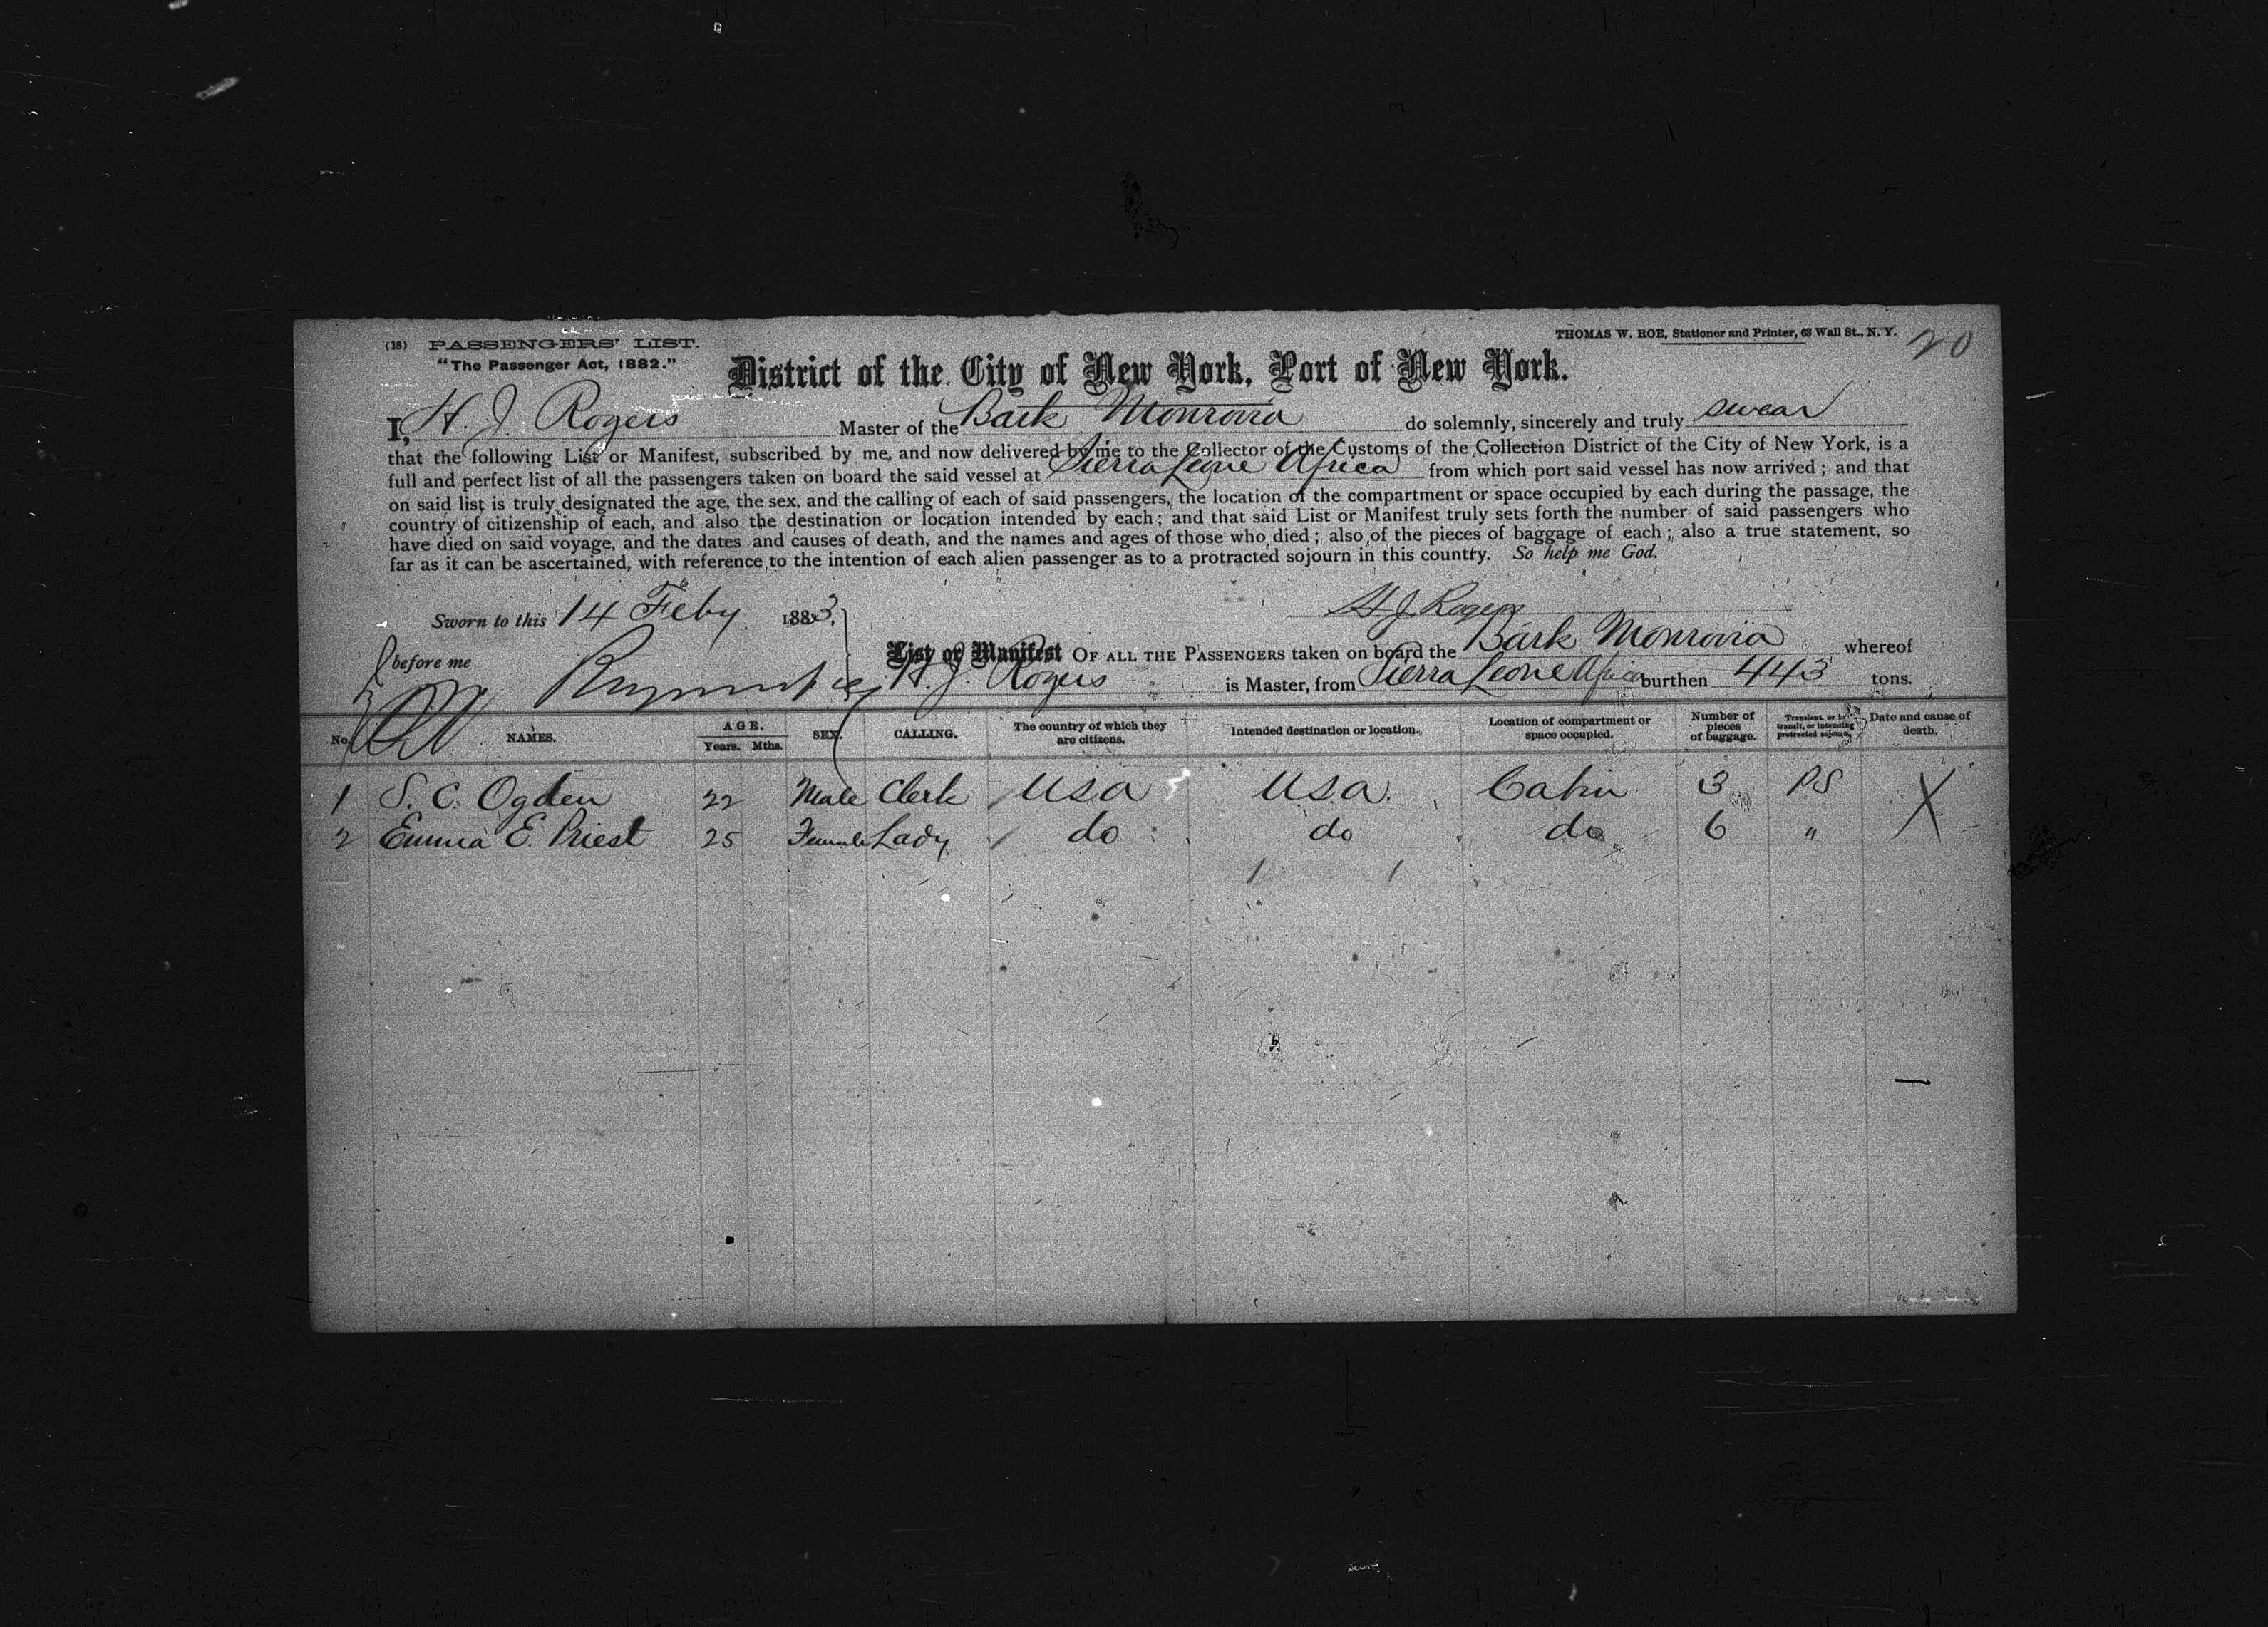 (18) PASSENGERS' LIST.
THOMAS W. ROE, Stationer and Printer, 63 Wall St., N. Y.
20
"The Passenger Act, 1882."
District of the City of New York, Port of New York.
I, H. J. Rogers Master of the Bark Monrovia do solemnly, sincerely and truly swear
that the following List or Manifest, subscribed by me, and now delivered by me to the Collector of the Customs of the Collection District of the City of New York, is a
full and perfect list of all the passengers taken on board the said vessel at Sierra Leone Africa from which port said vessel has now arrived; and that
on said list is truly designated the age, the sex, and the calling of each of said passengers, the location of the compartment or space occupied by each during the passage, the
country of citizenship of each, and also the destination or location intended by each; and that said List or Manifest truly sets forth the number of said passengers who
have died on said voyage, and the dates and causes of death, and the names and ages of those who died; also of the pieces of baggage of each; also a true statement, so
far as it can be ascertained, with reference to the intention of each alien passenger as to a protracted sojourn in this country. So help me God.
Sworn to this 14 Feby 1883.
H J Rogers
before me
List or Manifest OF ALL THE PASSENGERS taken on board the Bark Monrovia whereof
H. J. Rogers is Master, from Sierra Leone Africa burthen 443 tons.
No. NAMES. AGE. Years. Mths. SEX. CALLING. The country of which they are citizens. Intended destination or location. Location of compartment or space occupied. Number of pieces of baggage. Transient, or in transit, or intending protracted sojourn. Date and cause of death.
1 S. C. Ogden 22 Male Clerk U.S.a U.S.a. Cabin 3 PS X
2 Emma E. Priest 25 Female Lady do do do 6 "